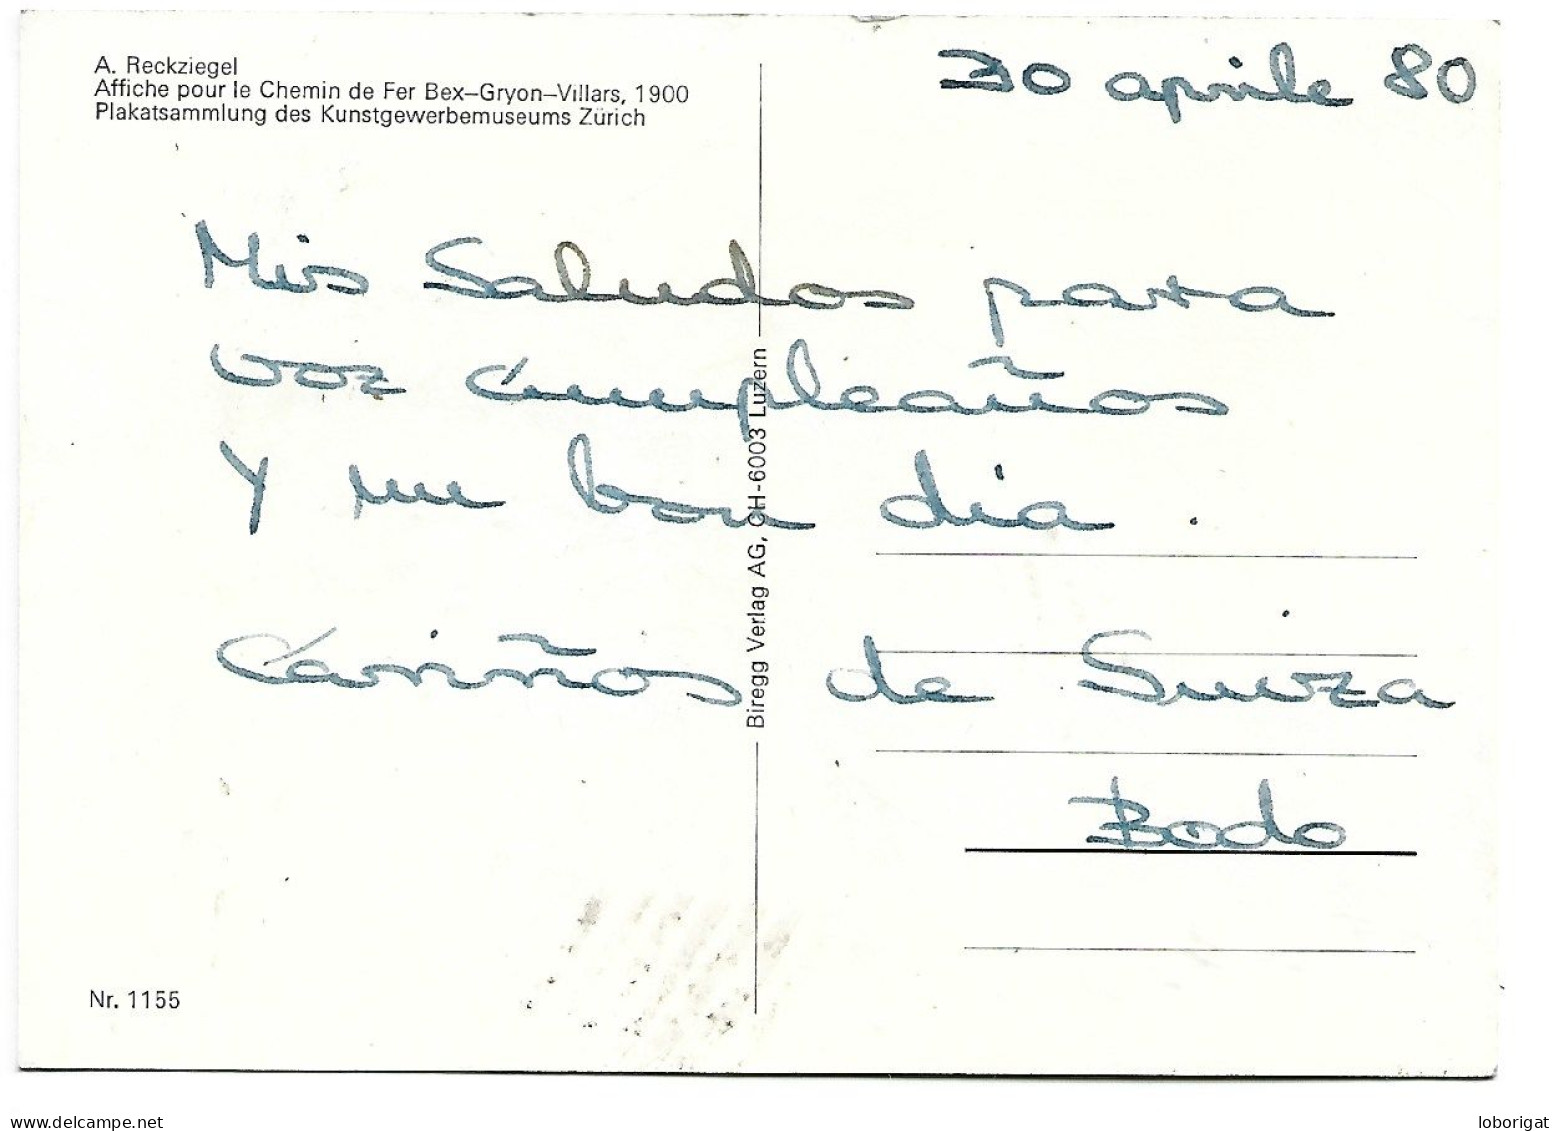 A. Reckziegel
Affiche pour le Chemin de Fer Bex–Gryon–Villars, 1900
Plakatsammlung des Kunstgewerbemuseums Zürich
30 aprile 80
Mis Saludos para
voz cumpleaños
y un bon dia.
Cariños de Suiza
Bodo
Biregg Verlag AG, CH-6003 Luzern
Nr. 1155
www.delcampe.net
loborigat